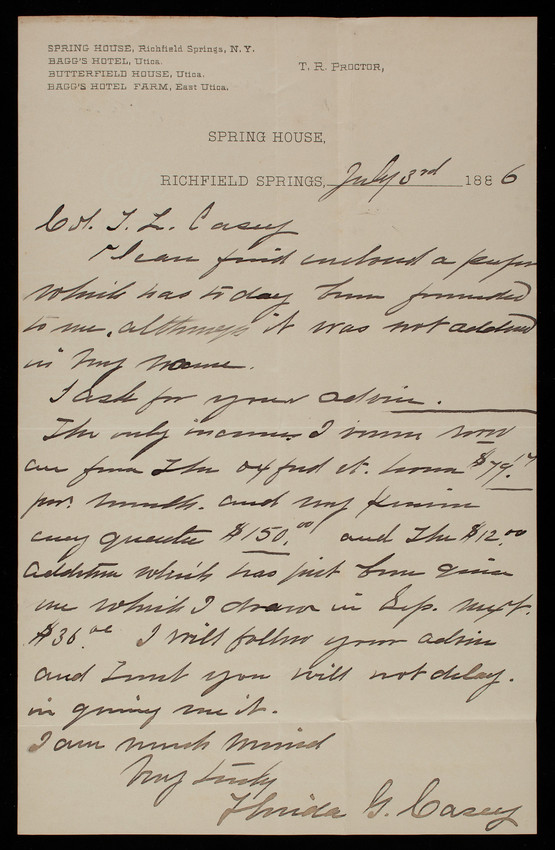 SPRING HOUSE, Richfield Springs, N.Y.
BAGG'S HOTEL, Utica.
BUTTERFIELD HOUSE, Utica.
BAGG'S HOTEL FARM, East Utica.
T. R. PROCTOR,
SPRING HOUSE,
RICHFIELD SPRINGS, July 3rd 1886
Col. T. L. Casey
Please find enclosed a paper
which has to day been forwarded
to me, although it was not addressed
in my name.
I ask for your advice.
The only incomes I now
are from The Oxford st. house $79.
per. month. and my pension
every quarter $150.00 and The $12.00
addition which has just been given
me which I draw in Sep. next.
$36.00 I will follow your advice
and trust you will not delay.
in giving me it.
I am much
Florida G. Casey